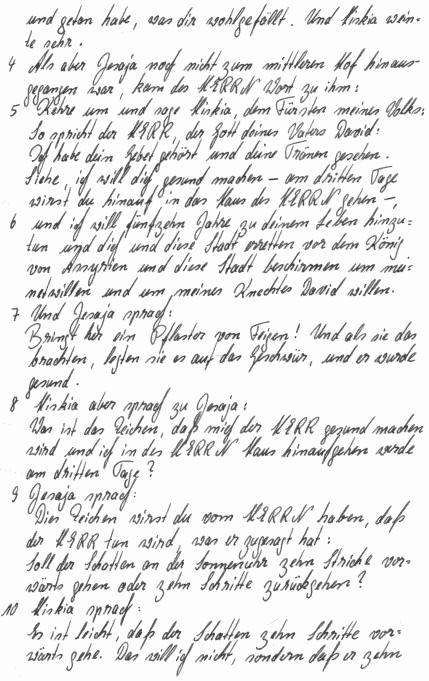 und getan habe, was dir wohlgefällt. Und Hiskia wein-
te sehr.
4 Als aber Jesaja noch nicht zum mittleren Hof hinaus-
gegangen war, kam des HERRN Wort zu ihm:
5 Kehre um und sage Hiskia, dem Fürsten meines Volks:
So spricht der HERR, der Gott deines Vaters David:
Ich habe dein Gebet gehört und deine Tränen gesehen.
Siehe, ich will dich gesund machen – am dritten Tage
wirst du hinauf in das Haus des HERRN gehen –,
6 und ich will fünfzehn Jahre zu deinem Leben hinzu-
tun und dich und diese Stadt erretten vor dem König
von Assyrien und diese Stadt beschirmen um mei-
netwillen und um meines Knechtes David willen.
7 Und Jesaja sprach:
Bringt her ein Pflaster von Feigen! Und als sie das
brachten, legten sie es auf das Geschwür, und er wurde
gesund.
8 Hiskia aber sprach zu Jesaja:
Was ist das Zeichen, daß mich der HERR gesund machen
wird und ich in des HERRN Haus hinaufgehen werde
am dritten Tage?
9 Jesaja sprach:
Dies Zeichen wirst du vom HERRN haben, daß
der HERR tun wird, was er zugesagt hat:
Soll der Schatten an der Sonnenuhr zehn Striche vor-
wärts gehen oder zehn Schritte zurückgehen?
10 Hiskia sprach:
Es ist leicht, daß der Schatten zehn Schritte vor-
wärts gehe. Das will ich nicht, sondern daß er zehn